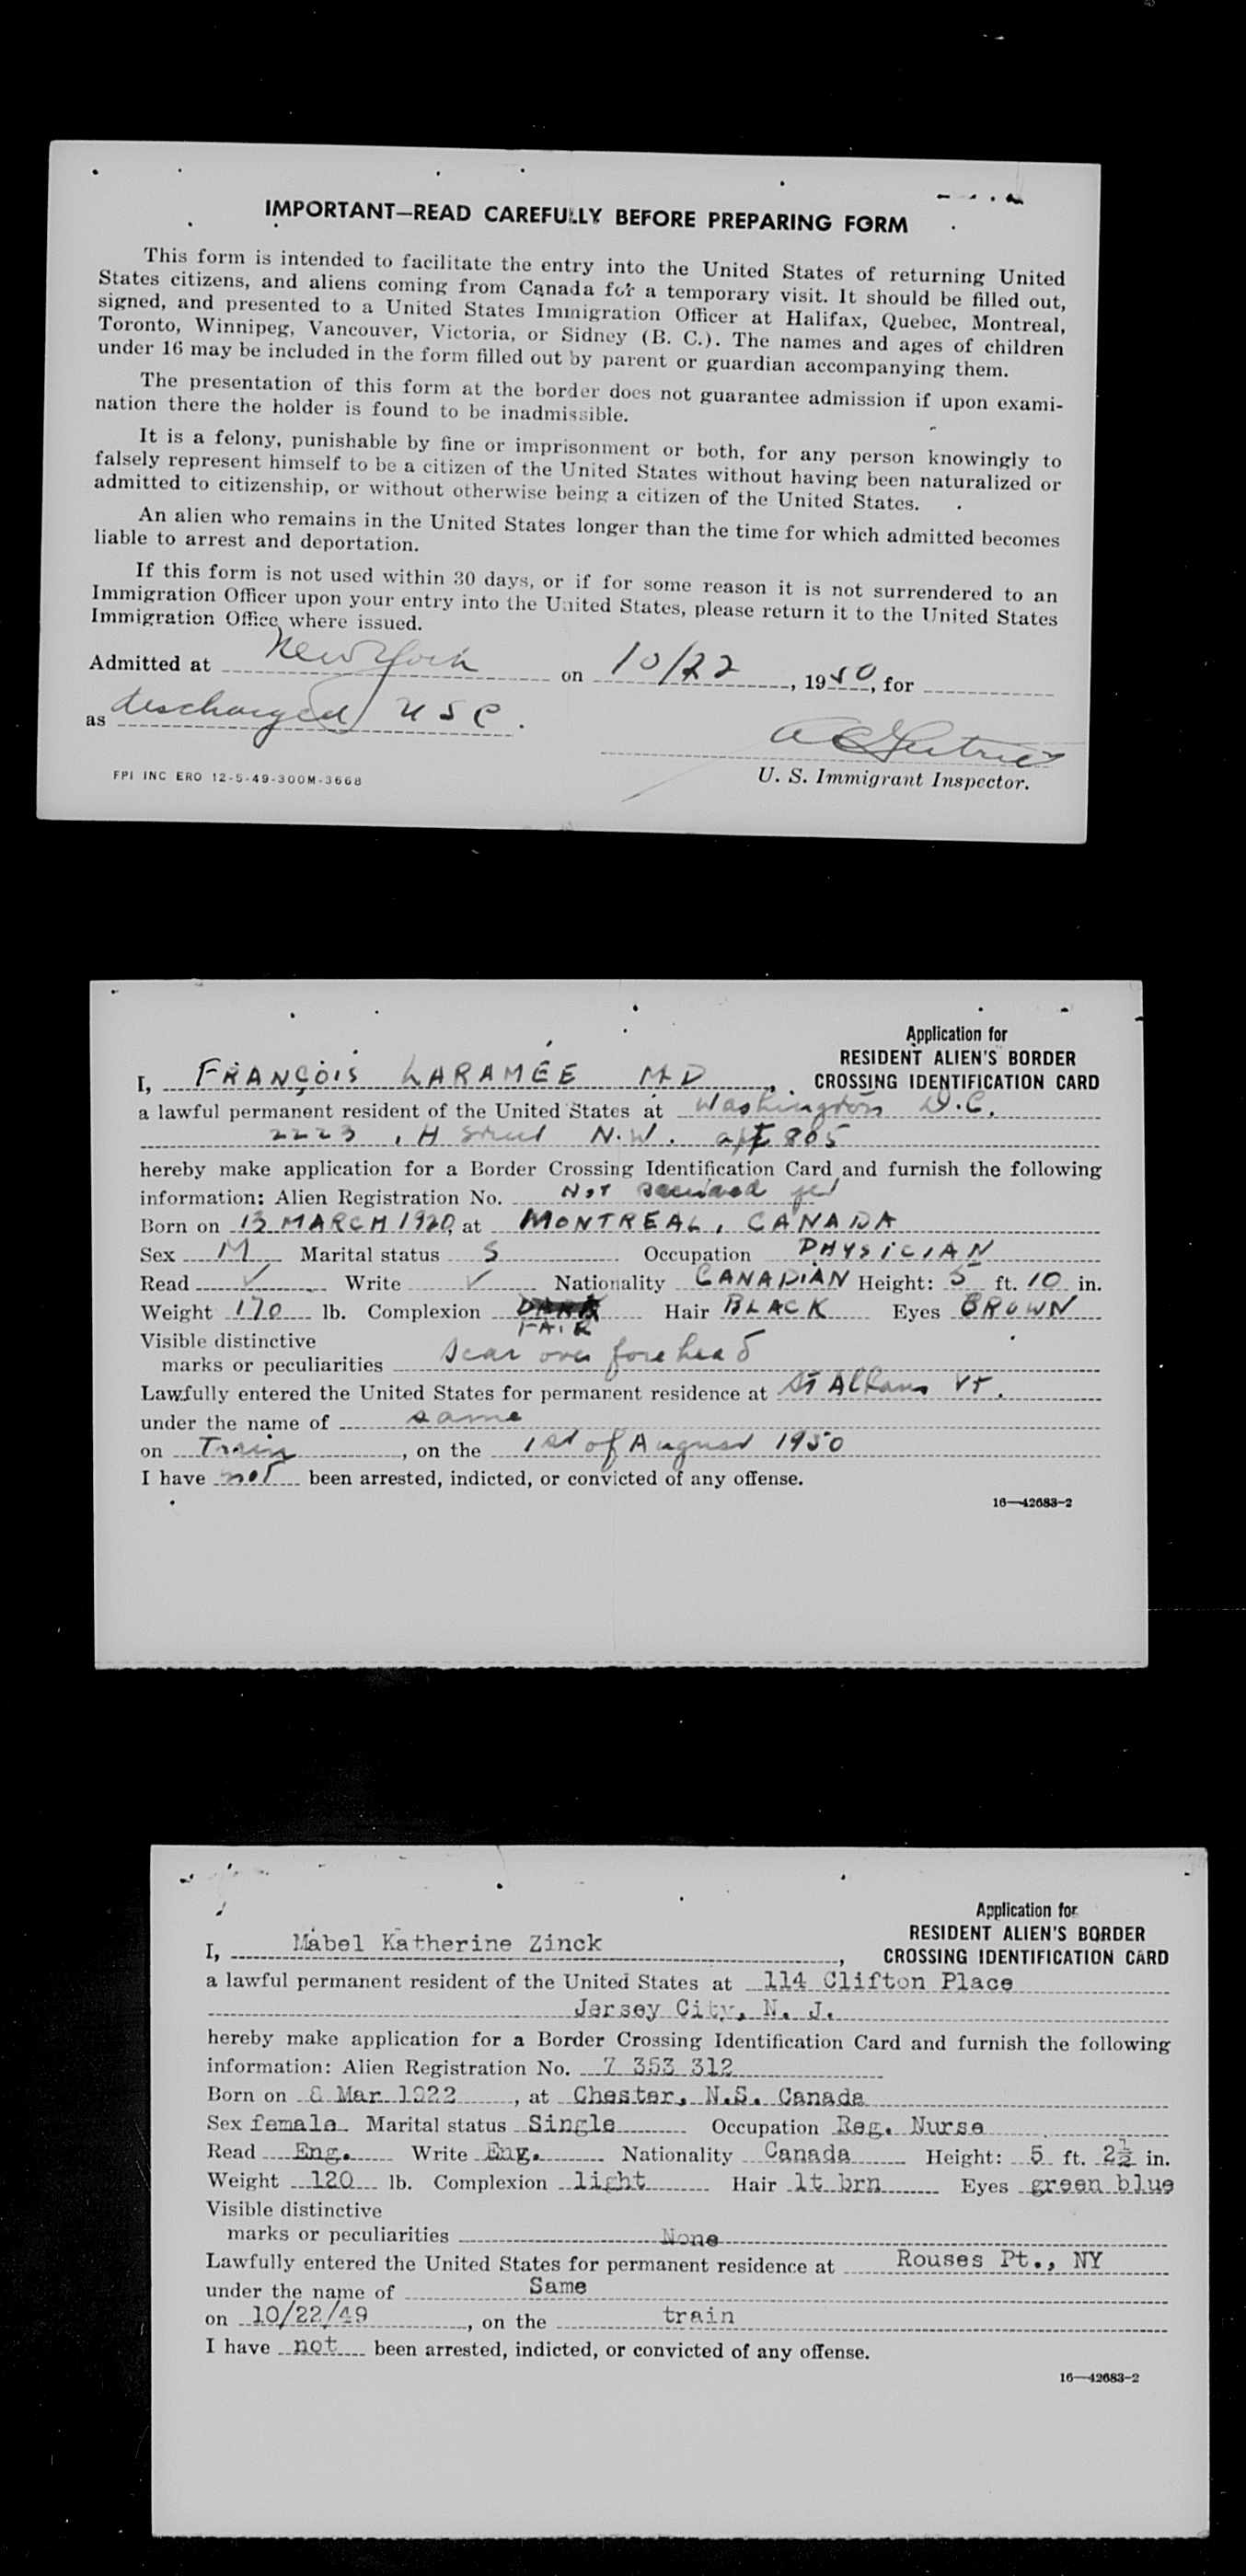 IMPORTANT—READ CAREFULLY BEFORE PREPARING FORM
This form is intended to facilitate the entry into the United States of returning United
States citizens, and aliens coming from Canada for a temporary visit. It should be filled out,
signed, and presented to a United States Immigration Officer at Halifax, Quebec, Montreal,
Toronto, Winnipeg, Vancouver, Victoria, or Sidney (B. C.). The names and ages of children
under 16 may be included in the form filled out by parent or guardian accompanying them.
The presentation of this form at the border does not guarantee admission if upon exami-
nation there the holder is found to be inadmissible.
It is a felony, punishable by fine or imprisonment or both, for any person knowingly to
falsely represent himself to be a citizen of the United States without having been naturalized or
admitted to citizenship, or without otherwise being a citizen of the United States.
An alien who remains in the United States longer than the time for which admitted becomes
liable to arrest and deportation.
If this form is not used within 30 days, or if for some reason it is not surrendered to an
Immigration Officer upon your entry into the United States, please return it to the United States
Immigration Office where issued.
Admitted at New York on 10/22, 1950, for
as discharged USC.
U. S. Immigrant Inspector.
FPI INC ERO 12-5-49-300M-3668
Application for
RESIDENT ALIEN'S BORDER
I, FRANÇOIS LARAMÉE MD, CROSSING IDENTIFICATION CARD
a lawful permanent resident of the United States at Washington D.C.
2223, H Street N.W. apt 805
hereby make application for a Border Crossing Identification Card and furnish the following
information: Alien Registration No. Not received yet
Born on 13 MARCH 1920, at MONTREAL, CANADA
Sex M Marital status S Occupation PHYSICIAN
Read ✓ Write ✓ Nationality CANADIAN Height: 5 ft. 10 in.
Weight 170 lb. Complexion DARK Hair BLACK Eyes BROWN
FAIR
Visible distinctive
marks or peculiarities Scar over forehead
Lawfully entered the United States for permanent residence at St Albans Vt.
under the name of same
on Train, on the 1st of August 1950
I have not been arrested, indicted, or convicted of any offense.
16—42683-2
Application for
RESIDENT ALIEN'S BORDER
I, Mabel Katherine Zinck, CROSSING IDENTIFICATION CARD
a lawful permanent resident of the United States at 114 Clifton Place
Jersey City, N. J.
hereby make application for a Border Crossing Identification Card and furnish the following
information: Alien Registration No. 7 353 312
Born on 8 Mar 1922, at Chester, N.S. Canada
Sex female Marital status Single Occupation Reg. Nurse
Read Eng. Write Eng. Nationality Canada Height: 5 ft. 2½ in.
Weight 120 lb. Complexion light Hair lt brn Eyes green blue
Visible distinctive
marks or peculiarities None
Lawfully entered the United States for permanent residence at Rouses Pt., NY
under the name of Same
on 10/22/49, on the train
I have not been arrested, indicted, or convicted of any offense.
16—42683-2